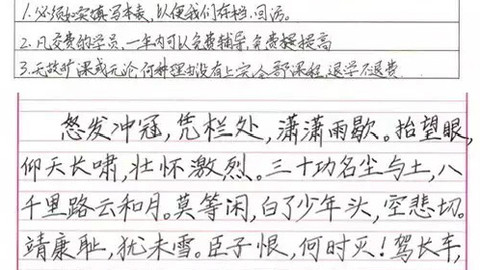 1.必须如实填写本表,以便我们存档.回访。
2.凡交费的学员,一年内可以免费辅导,免费提高
3.无故旷课或无论何种理由没有上完全部课程,退学不退费.
怒发冲冠,凭栏处,潇潇雨歇。抬望眼,
仰天长啸,壮怀激烈。三十功名尘与土,八
千里路云和月。莫等闲,白了少年头,空悲切。
靖康耻,犹未雪。臣子恨,何时灭!驾长车,